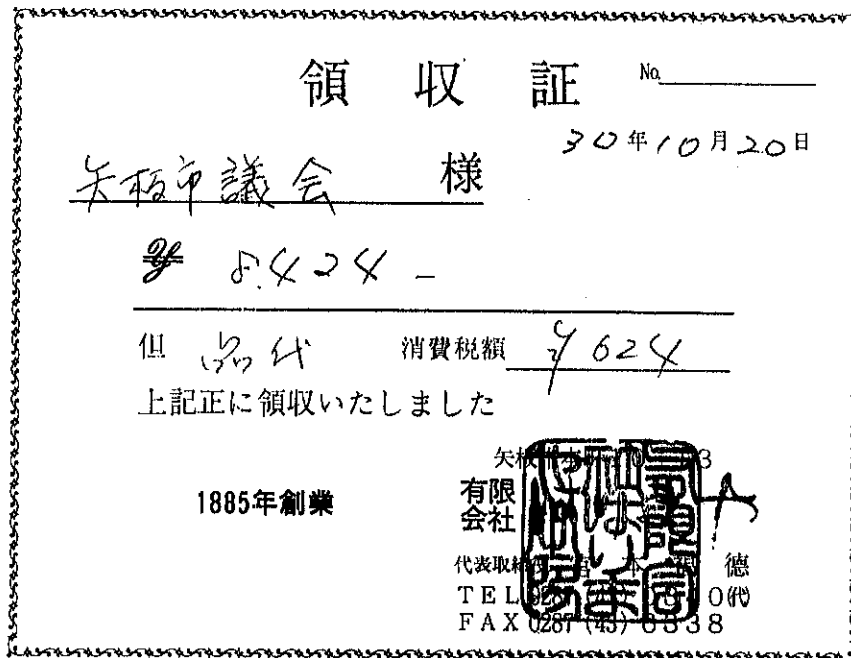 領収証 No.
30年10月20日
矢板市議会 様
¥ 8.424 -
但 品代 消費税額 ¥624
上記正に領収いたしました
矢板 本町 3
1885年創業
有限
会社
代表取締役 宮本 徳
TEL 0287 0(代)
FAX 0287(43)8338